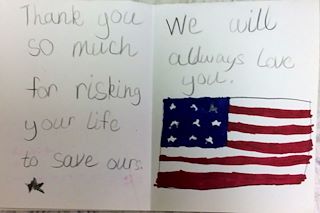 Thank you
so much
for risking
your life
to save ours.
We will
allways love
you.